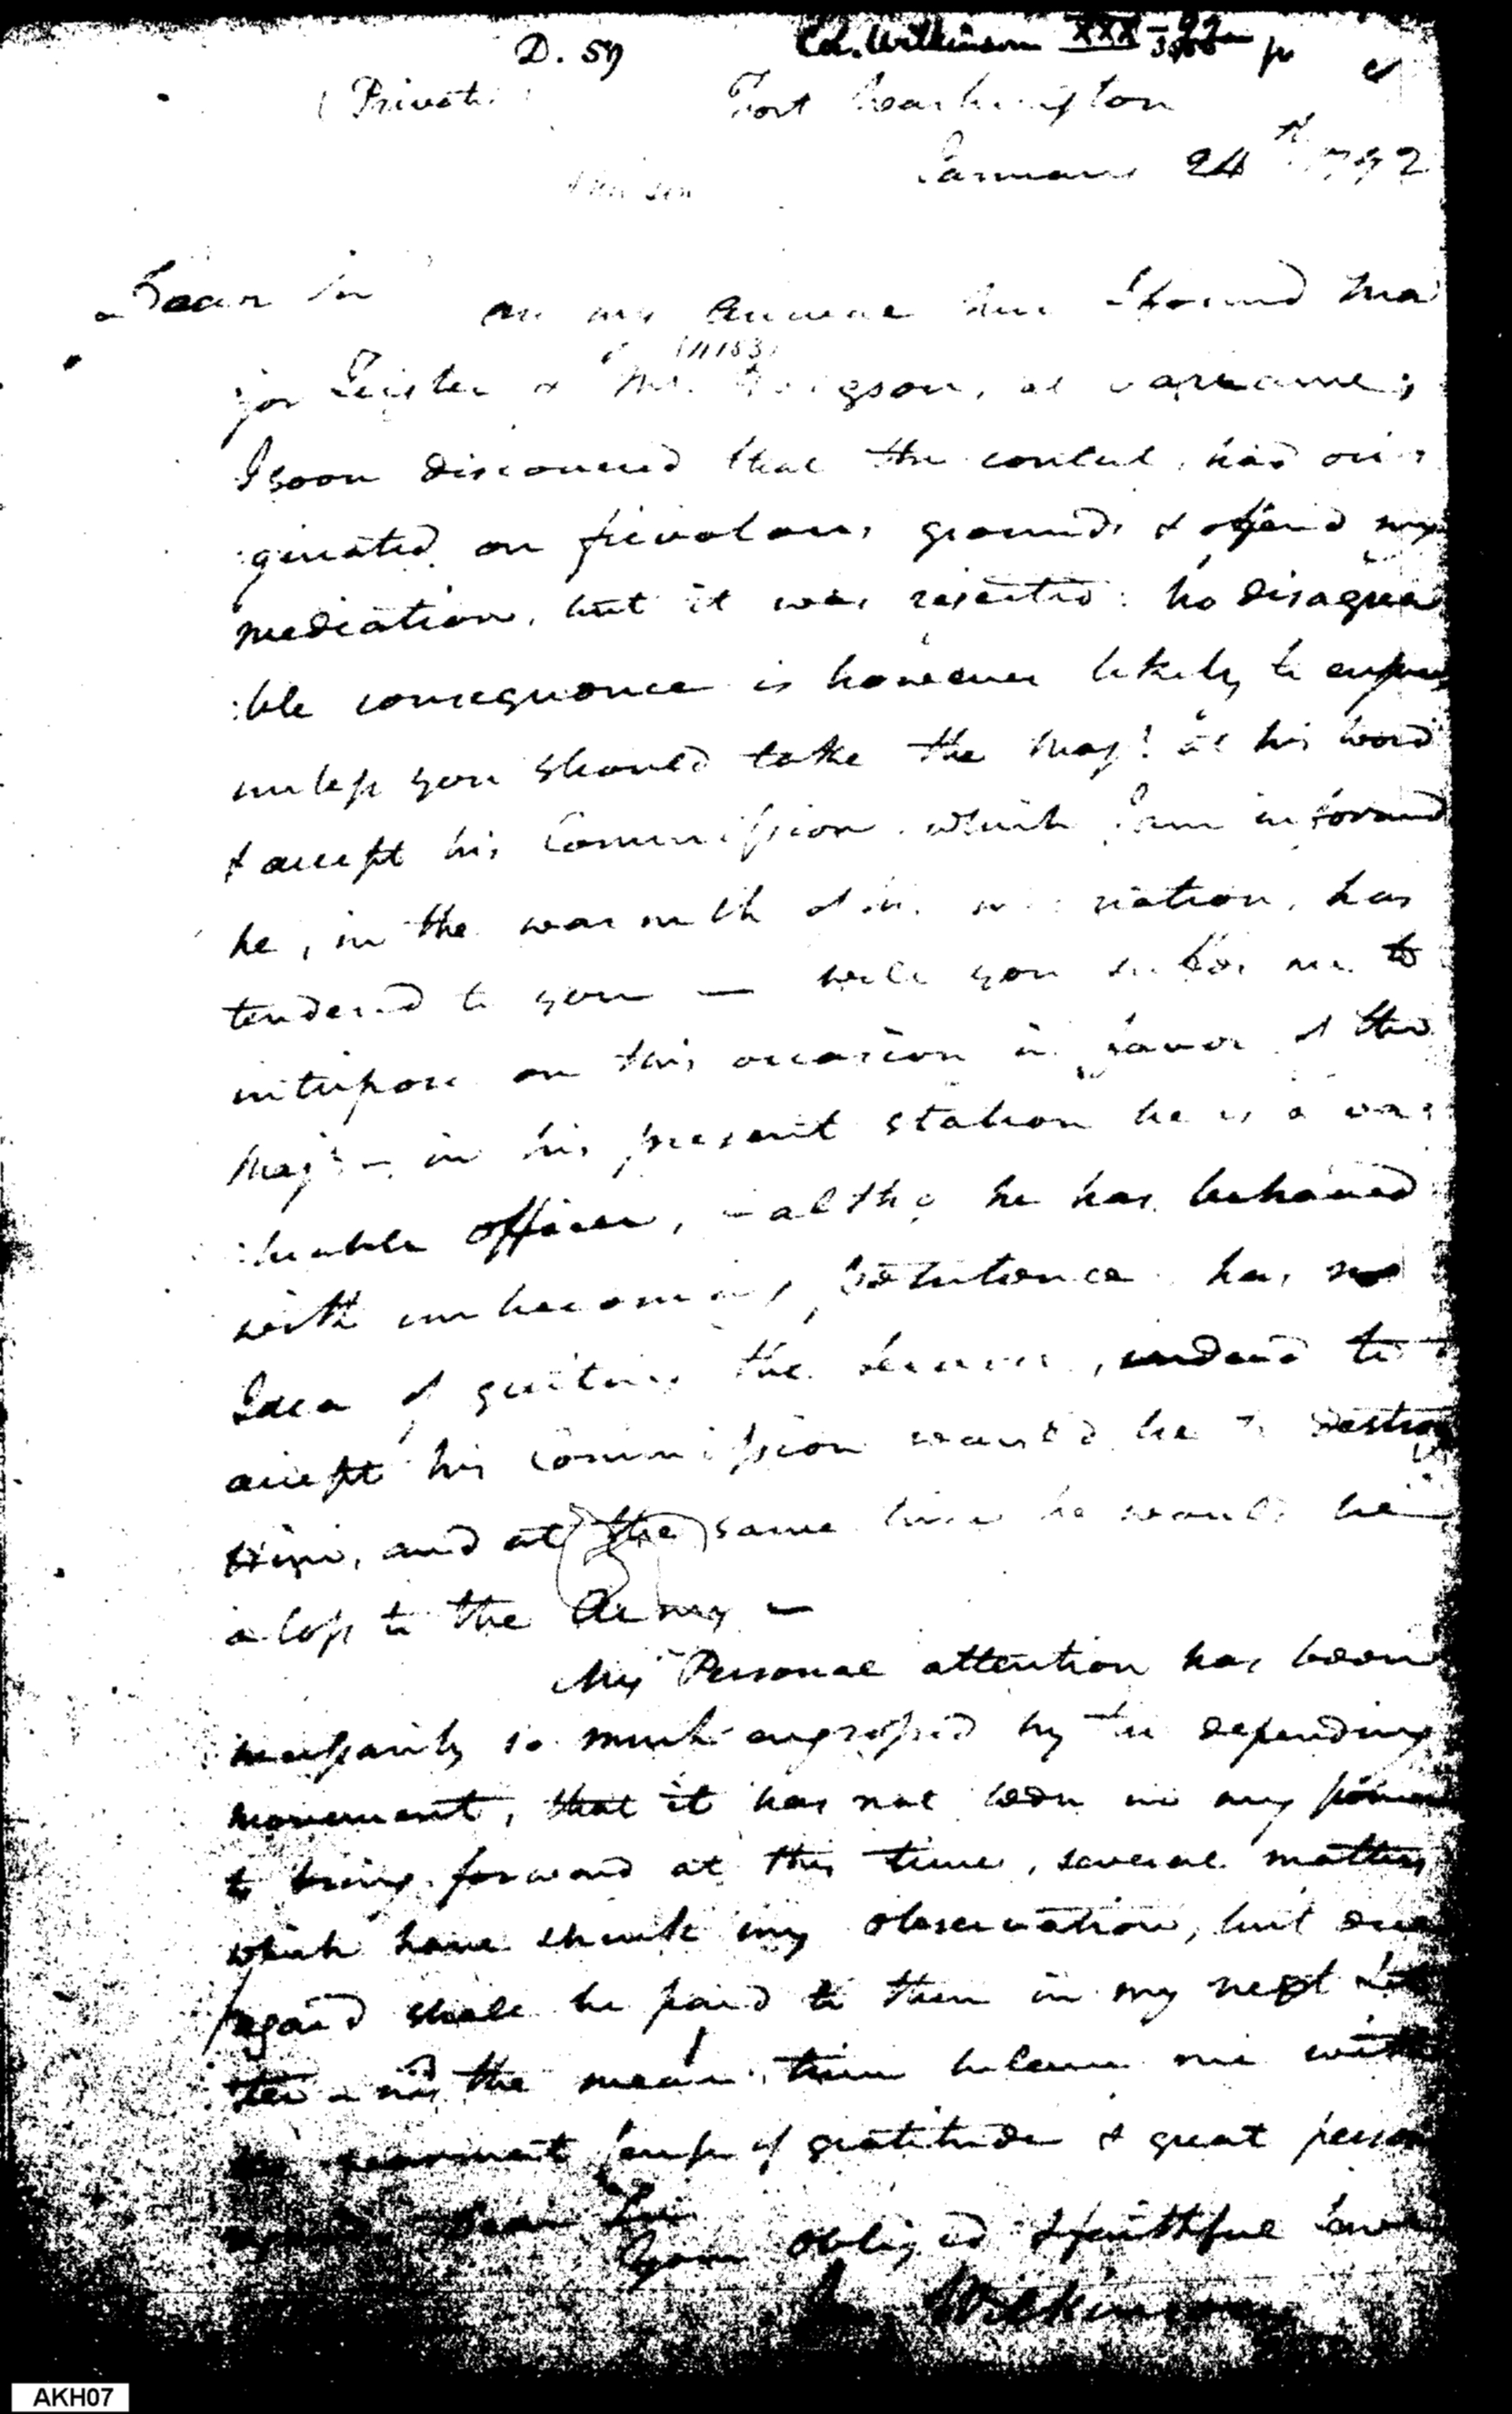 D. 59 Col. Wilkinson XXX
(Private) Fort Washington
January 24th 1792
Dear Sir on my arrival here I found Ma
jor Zeigler & Mr. Hodgson, at variance;
I soon discovered that the contest, had ori:
:ginated on frivolous grounds & offered my
mediation, but it was rejected: no disagrea
:ble consequence is however likely to ensue
unless you should take the Majr. at his word
& accept his Commission which I am informed
he, in the warmth of his, has
tendered to you — will you suffer me to
interpose on this occasion in favor of the
Majr — in his present station he is a va:
:luable officer, — altho he has behaved
with unbecoming petulance has no
Idea of quiting the Service, indeed to
accept his Commission would be to destroy
Him, and at the same time he would be
a loss to the Army —
My Personal attention has been
necessarily so much engrossed by the depending
movement, that it has not been in my power
to bring forward at this time, several matters
which have struck my observation, but due
regard shall be paid to them in my next Let
ter and the mean time believe me with
sense of gratitude & great person
Dear Sir
Your obliged & faithful Serv
Wilkinson
AKH07